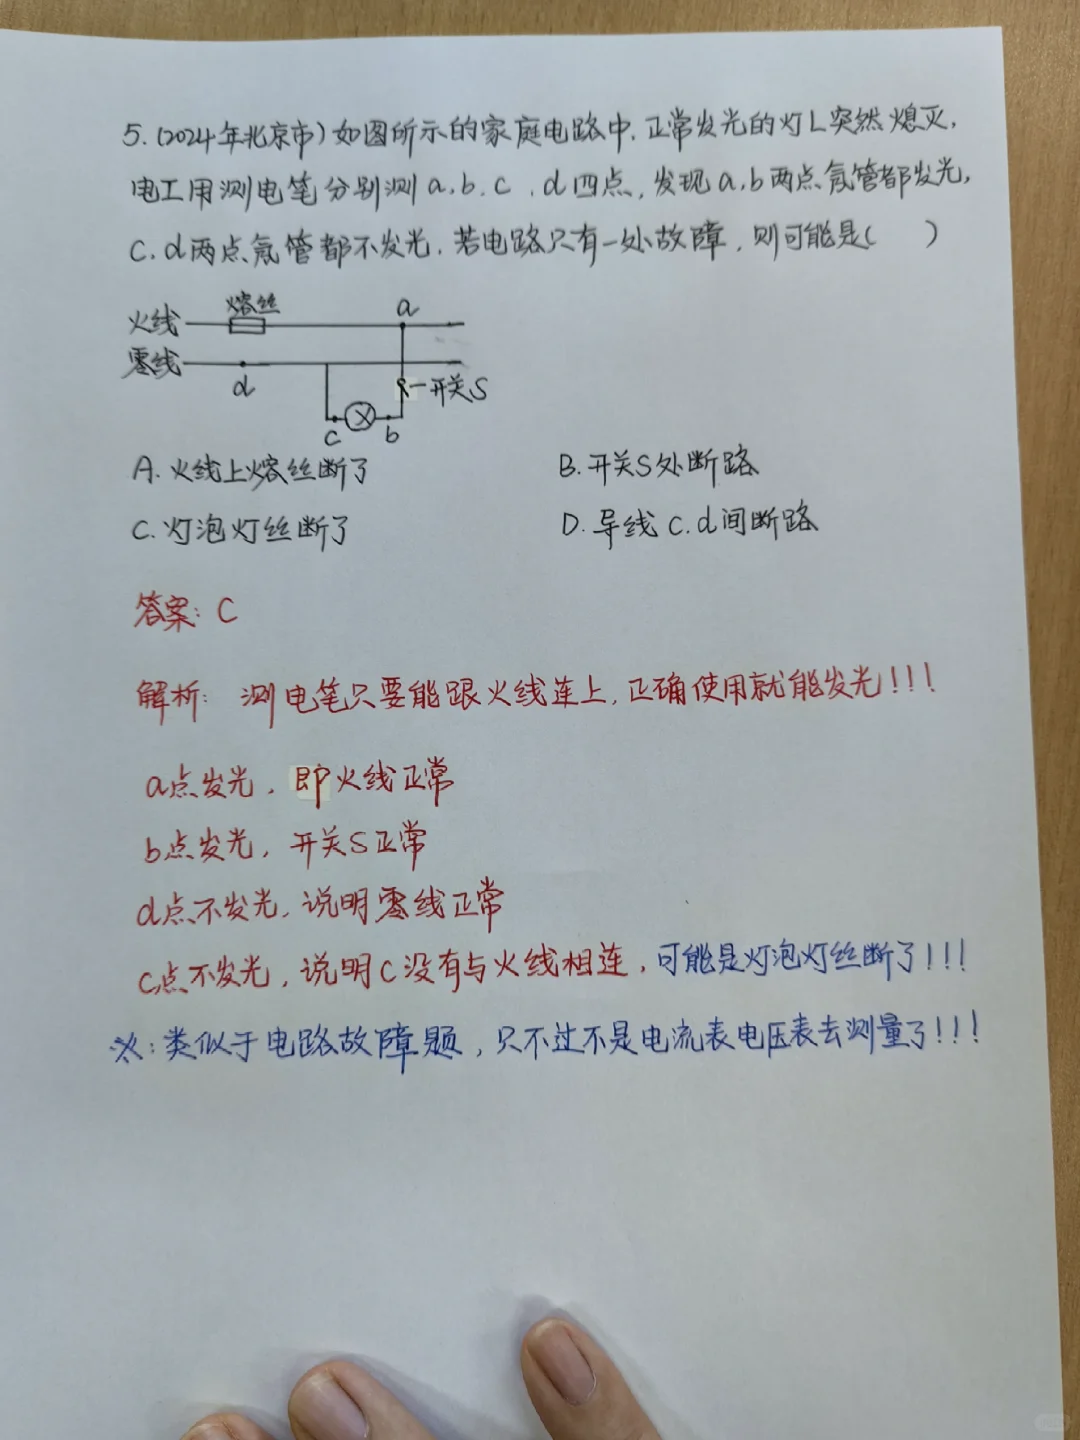 5.(2024年北京市)如图所示的家庭电路中,正常发光的灯L突然熄灭,
电工用测电笔分别测a.b.c.d四点,发现a.b两点氖管都发光,
c.d两点氖管都不发光.若电路只有一处故障,则可能是(  )
熔丝
a
火线
零线
d
开关S
c
b
A.火线上熔丝断了
B.开关S处断路
C.灯泡灯丝断了
D.导线c.d间断路
答案:C
解析:测电笔只要能跟火线连上,正确使用就能发光!!!
a点发光,即火线正常
b点发光,开关S正常
d点不发光,说明零线正常
c点不发光,说明c没有与火线相连,可能是灯泡灯丝断了!!!
※:类似于电路故障题,只不过不是电流表电压表去测量了!!!